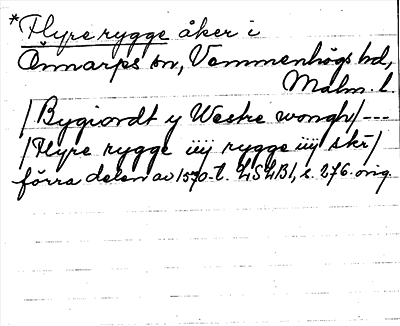 *Flyre rygge åker i
Önnarps sn, Vemmenhögs hd,
Malm. l.
/Bygiordt y Westre wongh/---
/Flyre rygge iiij rygge iiij skr/
förra delen av 1570-t. LSLB1, s. 276. orig.